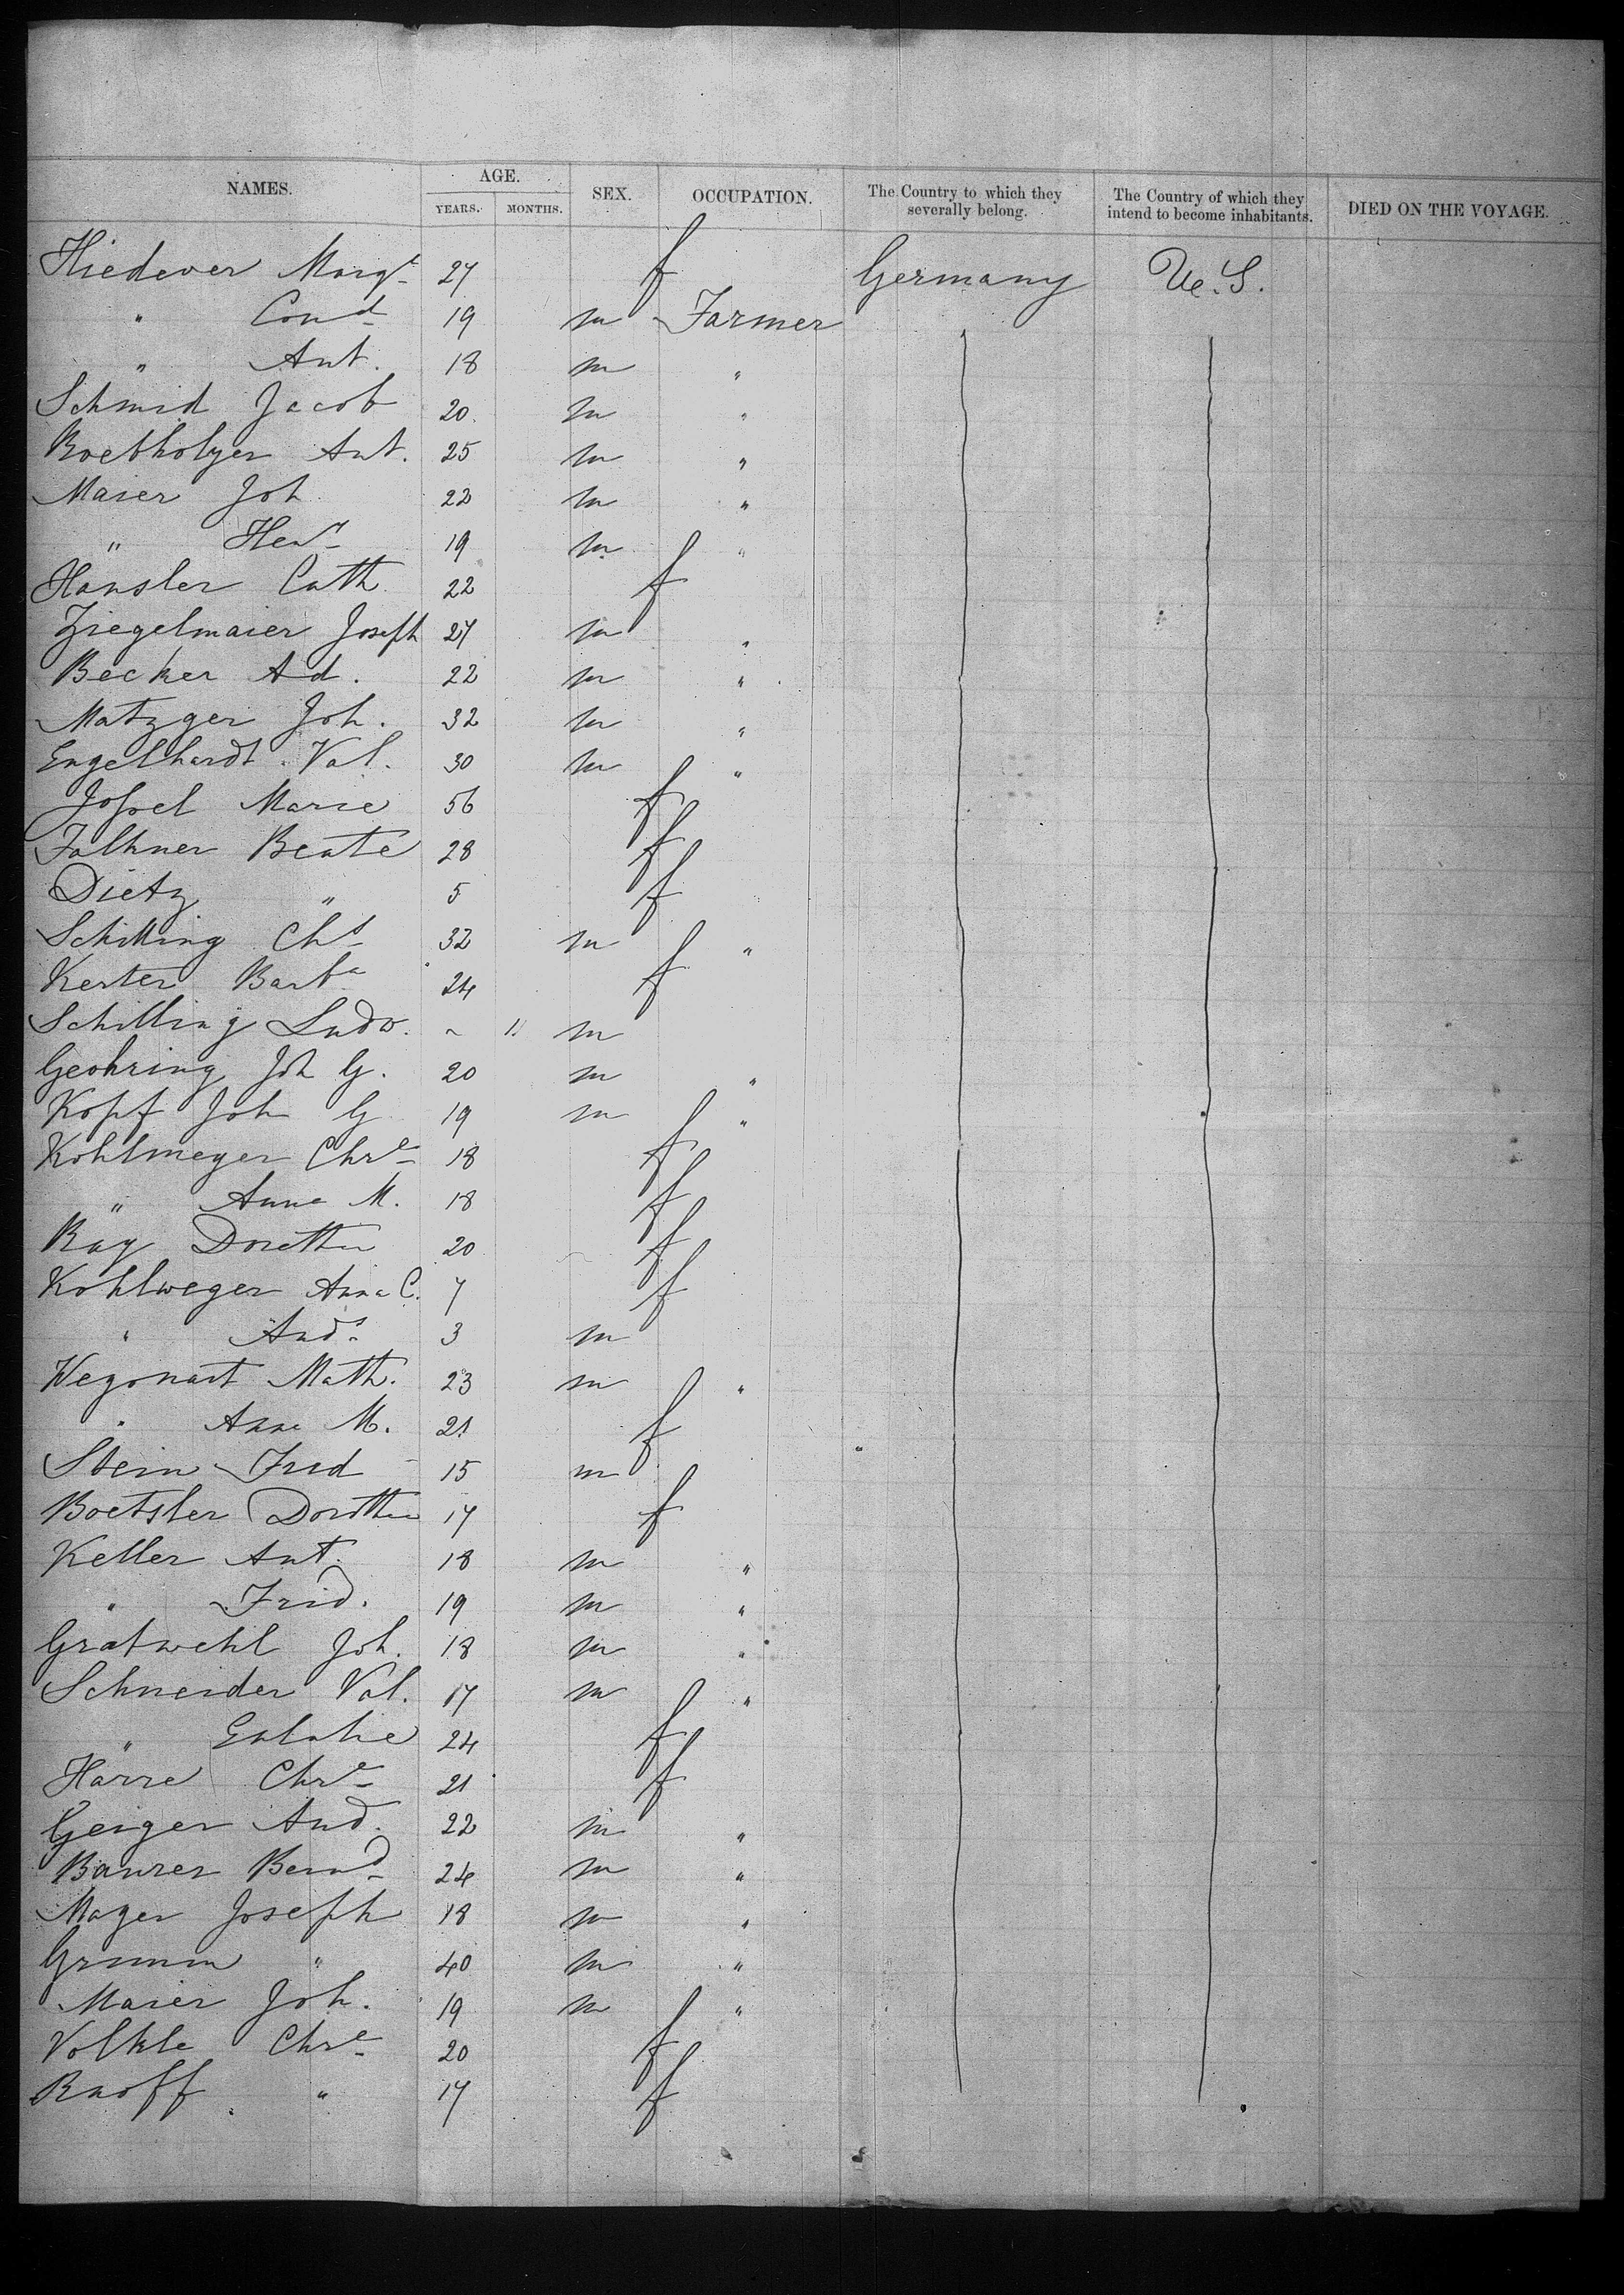 NAMES. AGE. SEX. OCCUPATION. The Country to which they severally belong. The Country of which they intend to become inhabitants. DIED ON THE VOYAGE.
YEARS. MONTHS.
Hiedever Margt 27 f Germany U.S.
" Cond 19 m Farmer
" Ant. 18 m "
Schmid Jacob 20 m "
Boebholzer Ant. 25 m "
Maier Joh 22 m "
" Hey 19 m "
Hansler Cath 22 f
Ziegelmaier Joseph 27 m "
Becker Ad. 22 m "
Matzger Joh. 32 m "
Engelhardt Val. 30 m "
Jossel Marie 56 f
Falkner Beate 28 f
Dietz " 5 f
Schilling Chs 32 m "
Kerter Barba 24 f
Schilling Ludw. ~ 11 m
Geohring Joh G. 20 m "
Kopf Joh G 19 m "
Kohlmeyer Chre 18 f
" Anna M. 18 f
Ray Dorethe 20 f
Kohlweger Anna C. 7 f
" Ands 3 m
Wegonast Math. 23 m "
" Anna M. 21 f "
Stein Fred 15 m
Boetsler Dorothe 17 f
Keller Ant. 18 m "
" Frid. 19 m "
Gratwehl Joh. 18 m "
Schneider Val. 17 m "
" Eulalie 24 f
Harre Chre 21 f
Geiger And. 22 m "
Baurer Bernd 24 m "
Mayer Joseph 18 m "
Grimm " 40 m "
Maier Joh. 19 m "
Volkle Chre 20 f
Knoff " 17 f